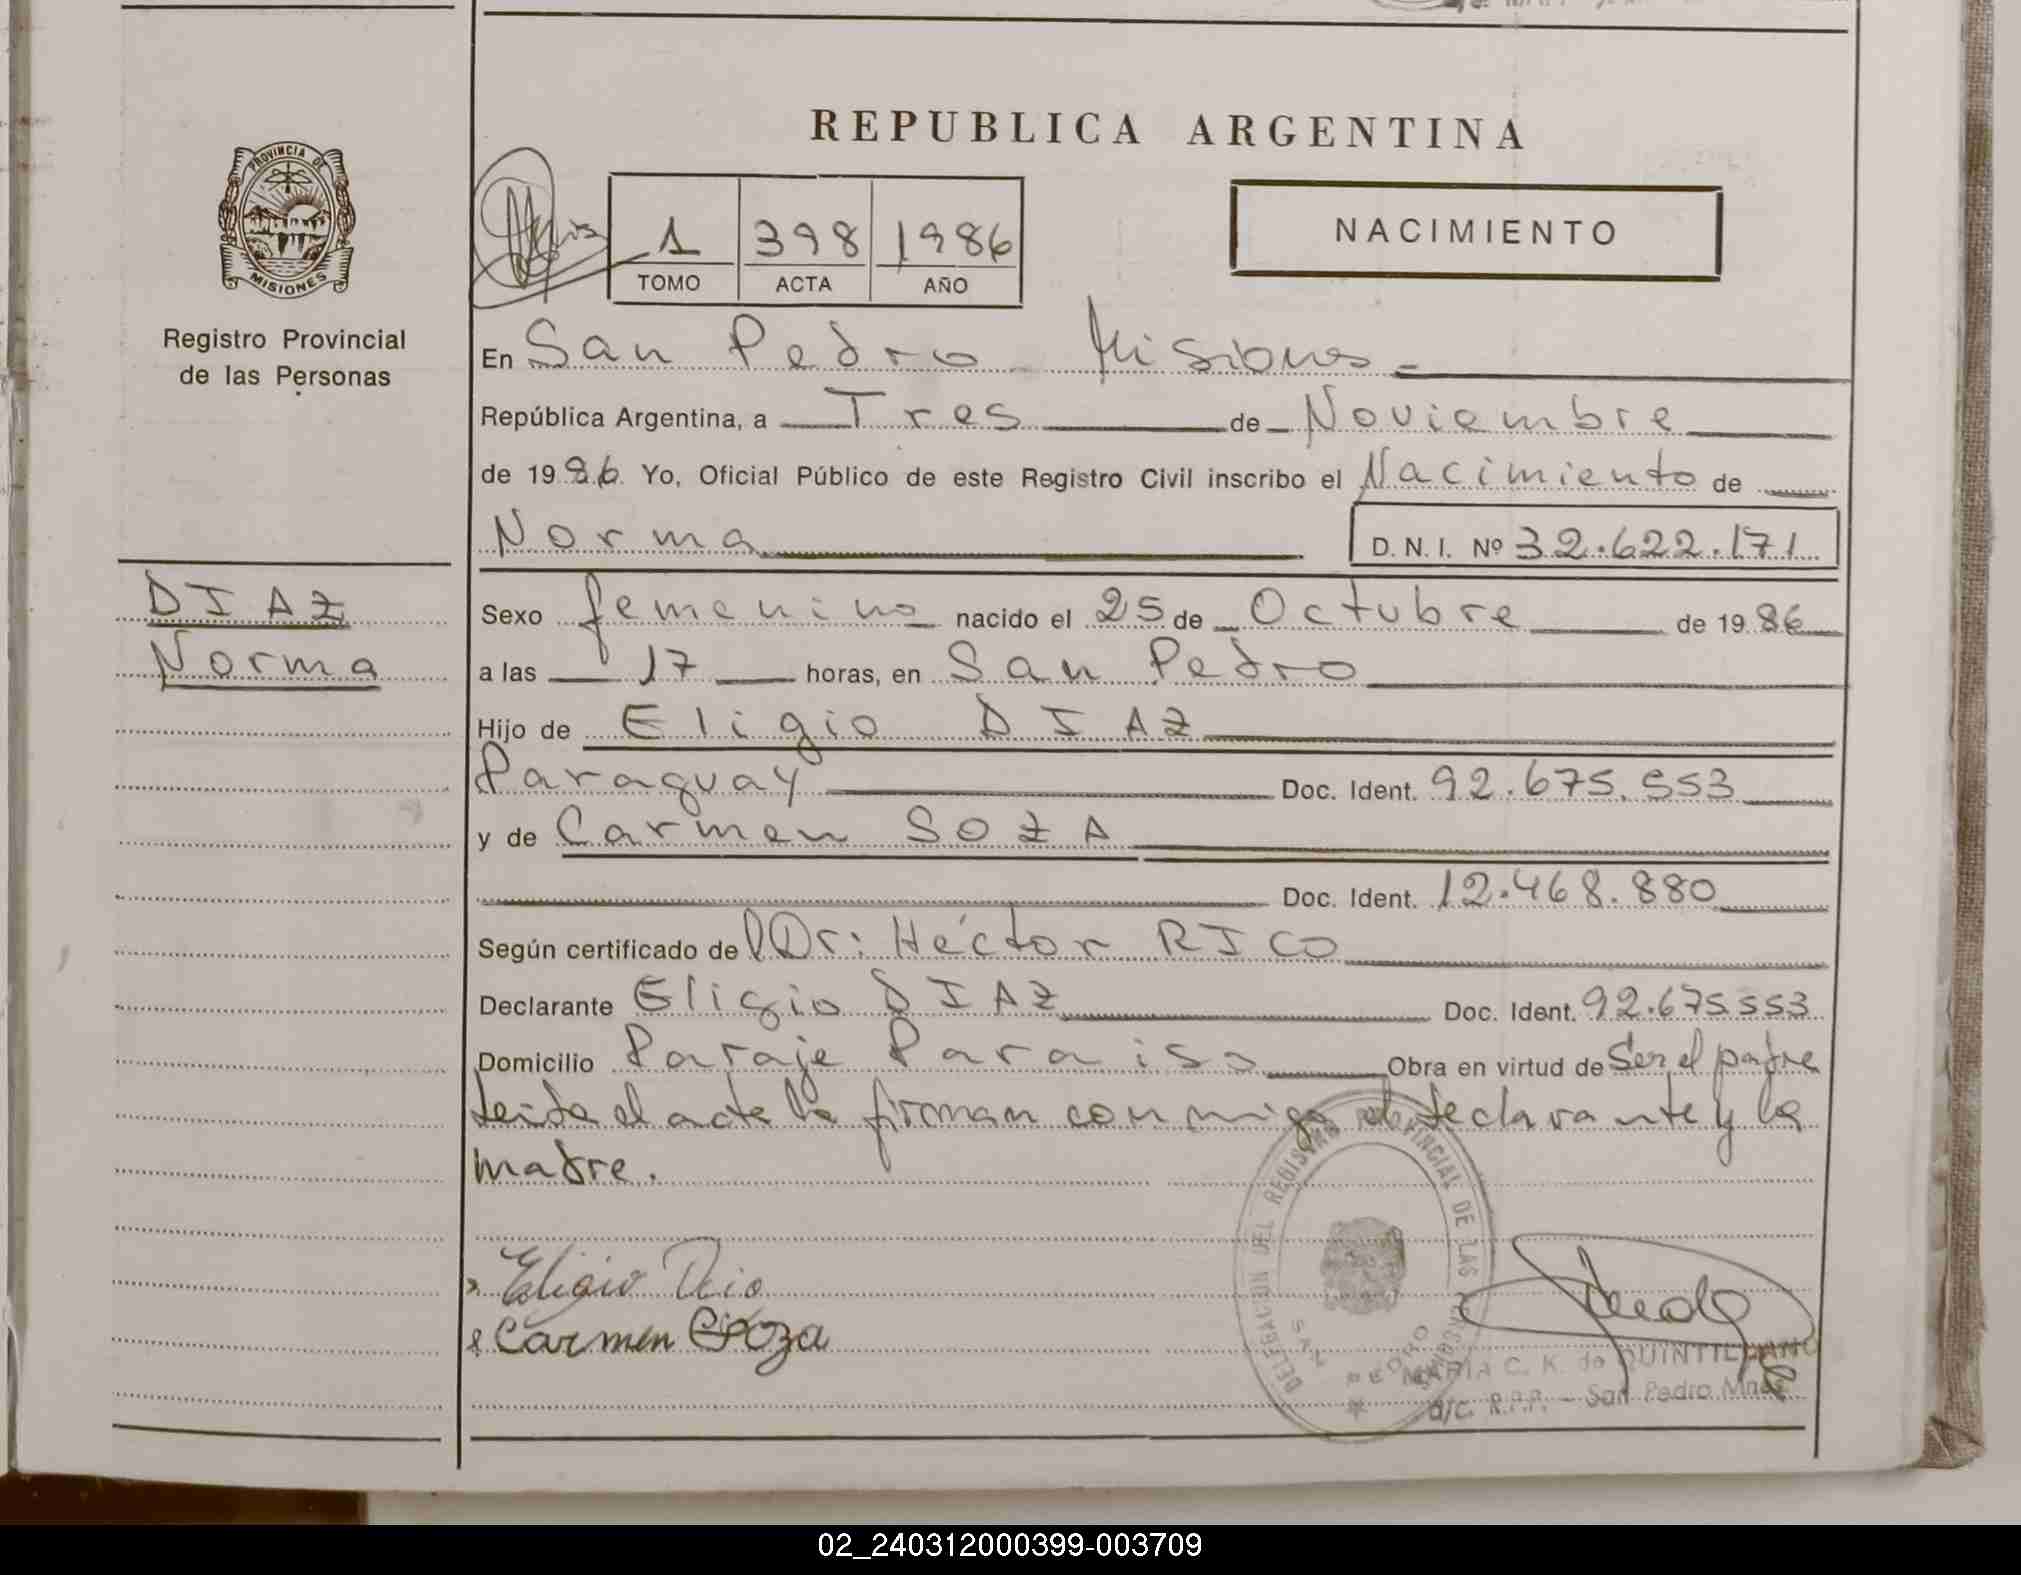 REPUBLICA ARGENTINA
PROVINCIA DE
MISIONES
Registro Provincial
de las Personas
1 398 1986
TOMO ACTA AÑO
NACIMIENTO
En San Pedro Misiones
República Argentina, a Tres de Noviembre
de 1986 Yo, Oficial Público de este Registro Civil inscribo el Nacimiento de
Norma D. N. I. Nº 32.622.171
DIAZ
Norma
Sexo femenino nacido el 25 de Octubre de 1986
a las 17 horas, en San Pedro
Hijo de Eligio DIAZ
Paraguay Doc. Ident. 92.675.553
y de Carmen SOZA
Doc. Ident. 12.468.880
Según certificado de Dr: Héctor RICO
Declarante Eligio DIAZ Doc. Ident. 92.675.553
Domicilio Paraje Paraiso Obra en virtud de Ser el padre
leida el acta la firman conmigo el declarante y la
madre.
Eligio
Carmen Soza
DELEGACION DEL REGISTRO PROVINCIAL DE LAS PERSONAS
SAN PEDRO
MARIA C. K. de QUINTILIANO
a/c. R.P.P. - San Pedro Mnes
02_240312000399-003709